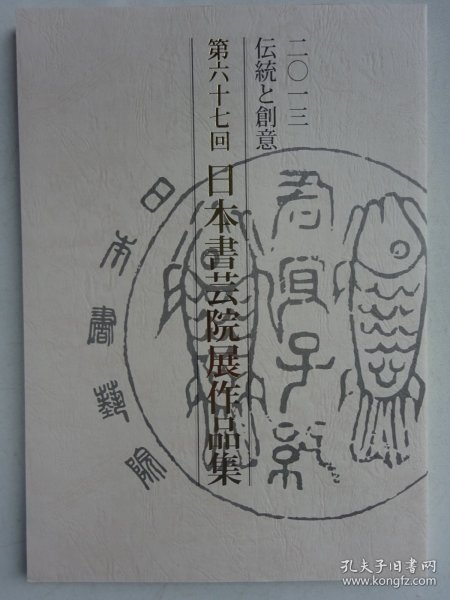 二〇一三
伝統と創意
第六十七回 日本書芸院展作品集
君宜子孫
日本書藝院
孔夫子旧书网
www.kongfz.com